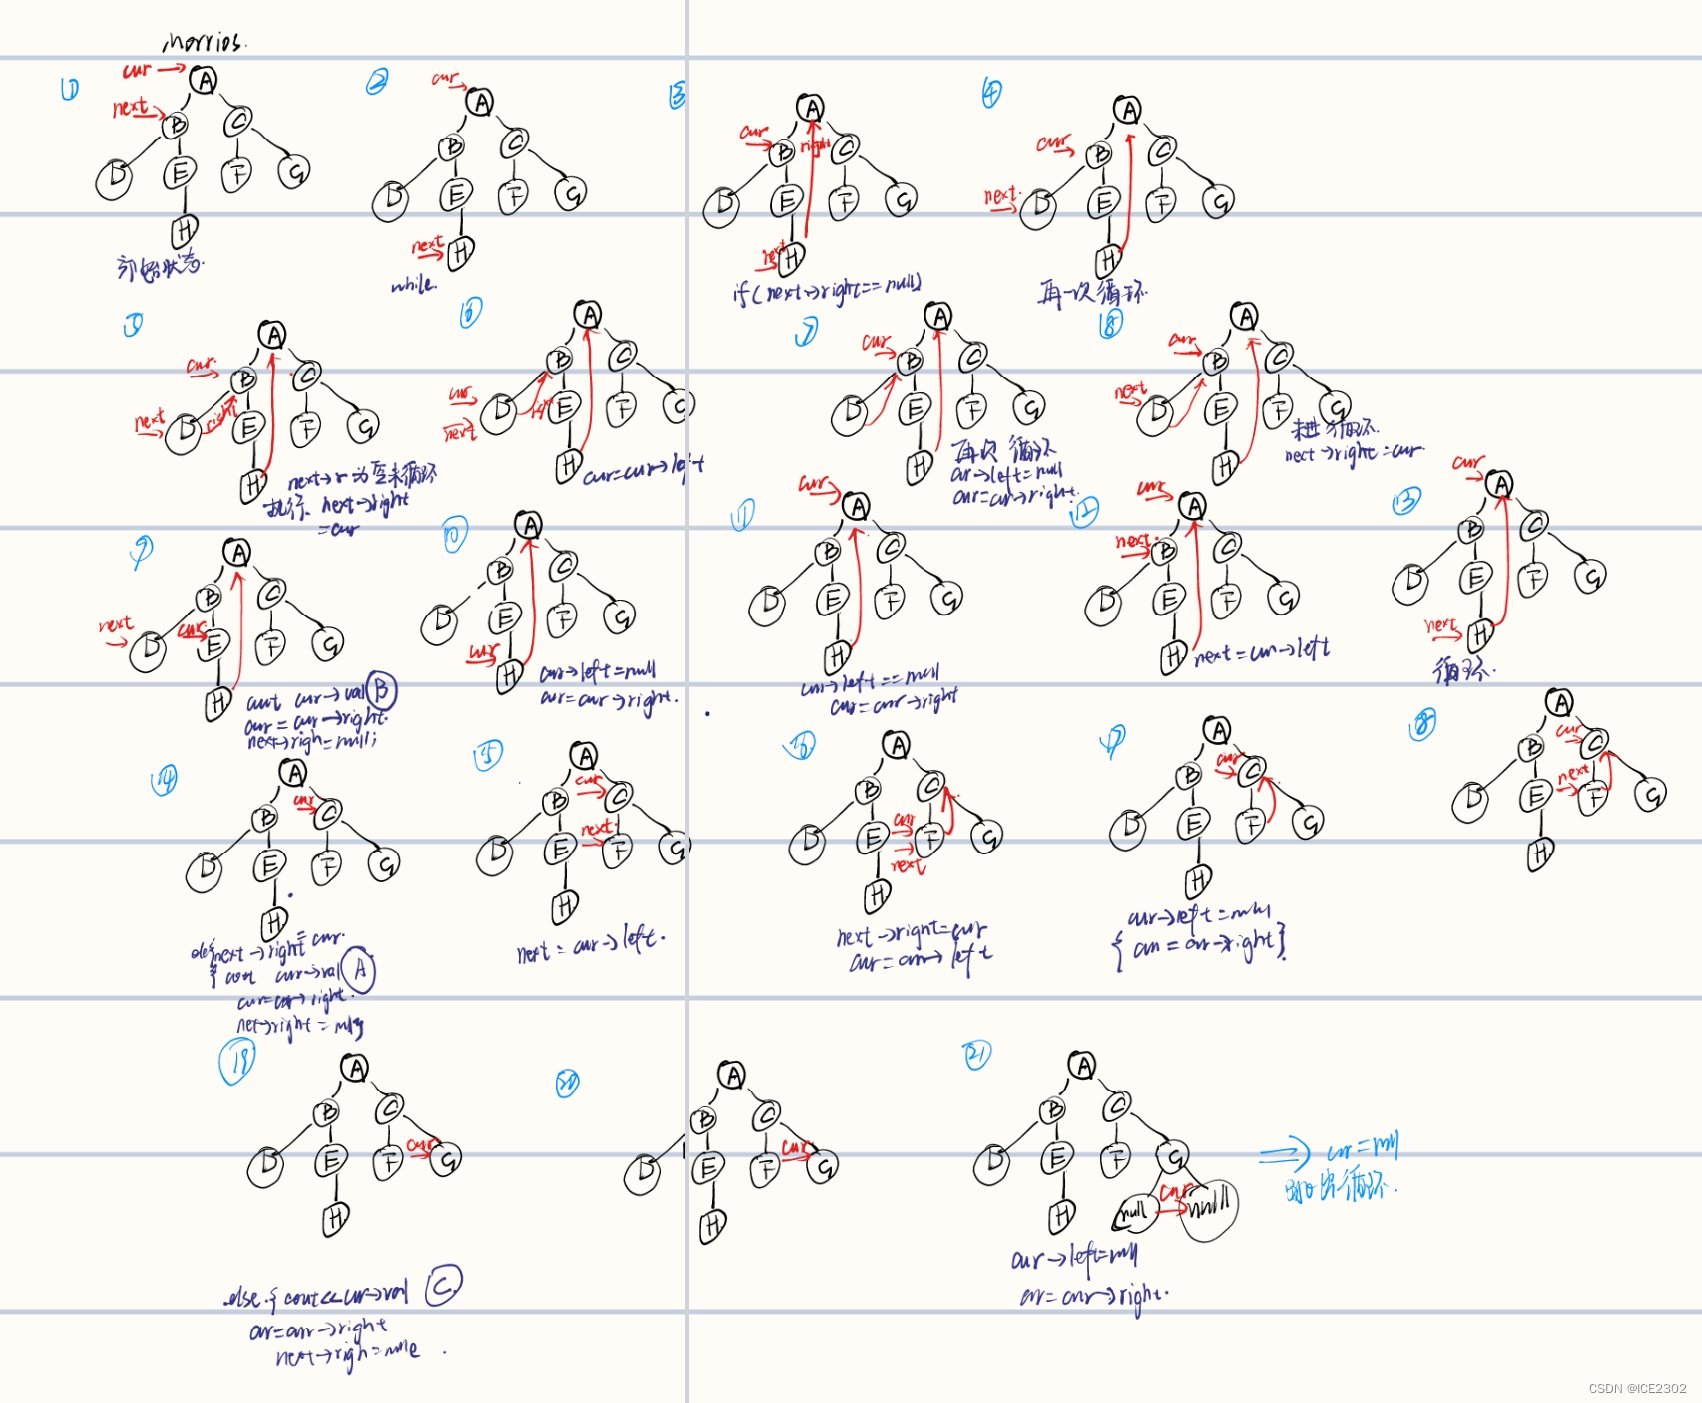 morrios.
①
cur
next
A
B
C
D
E
F
G
H
初始状态.
②
cur
A
B
C
D
E
F
G
next
H
while
③
A
cur
right
B
C
D
E
F
G
next
H
if(next→right==null)
④
A
cur
B
C
next.
D
E
F
G
H
再一次循环.
⑤
A
cur.
B
C
next
D
right
E
F
G
H
next→r为空未循环
执行 next→right
=cur
⑥
A
B
C
cur
D
E
F
G
next
H
cur=cur→left
⑦
A
cur
B
C
D
E
F
G
H
再次循环
cur→left=null
cur=cur→right.
⑧
A
cur
B
C
next
D
E
F
G
H
未进循环.
next→right=cur.
⑨
A
B
C
next
D
cur
E
F
G
H
cout cur→val B
cur=cur→right.
next→righ=null;
⑩
A
B
C
D
E
F
G
cur
H
cur→left=null
cur=cur→right.
⑪
cur
A
B
C
D
E
F
G
H
cur→left==null
cur=cur→right
⑫
cur
A
next.
B
C
D
E
F
G
H
next=cur→left
⑬
cur
A
B
C
D
E
F
G
next
H
循环.
⑭
A
cur
B
C
D
E
F
G
H
next→right=cur.
{ cout cur→val A
cur=cur→right.
⑮
A
cur
B
C
next.
D
E
F
G
H
next=cur→left.
⑯
A
B
C
cur
D
E
F
G
next
H
next→right=cur
cur=cur→left
⑰
A
cur
B
C
D
E
F
G
H
cur→left=null
{ cur=cur→right}.
⑱
A
cur
B
C
next
D
E
F
G
H
⑲
A
B
C
cur
D
E
F
G
H
else.{cout<<cur→val C
cur=cur→right
next→righ=null.
⑳
A
B
C
cur
D
E
F
G
H
㉑
A
B
C
D
E
F
G
cur
H
null
null
cur→left=null
cur=cur→right.
⇒ cur=null
跳出循环.
CSDN @ICE2302